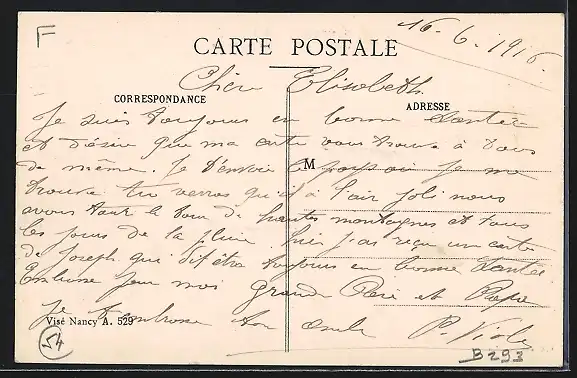 F
16. 6. 1916.
CARTE POSTALE
Chère Elisabeth
CORRESPONDANCE
ADRESSE
Je suis toujours en bonne Santée
et désire que ma carte vous trouve à tous
de même. Je t'envoie le pays où je me
M
trouve tu verras qu'il à l'air joli nous
avons tout le tour de hautes montagnes et tous
les jours de la pluie. hier j'ai reçu une carte
de Joseph qui dit être toujours en bonne Santée
Embrasse pour moi Grand Père et Papa
Je t'embrasse ton oncle P.
Visé Nancy A. 529
54
B293